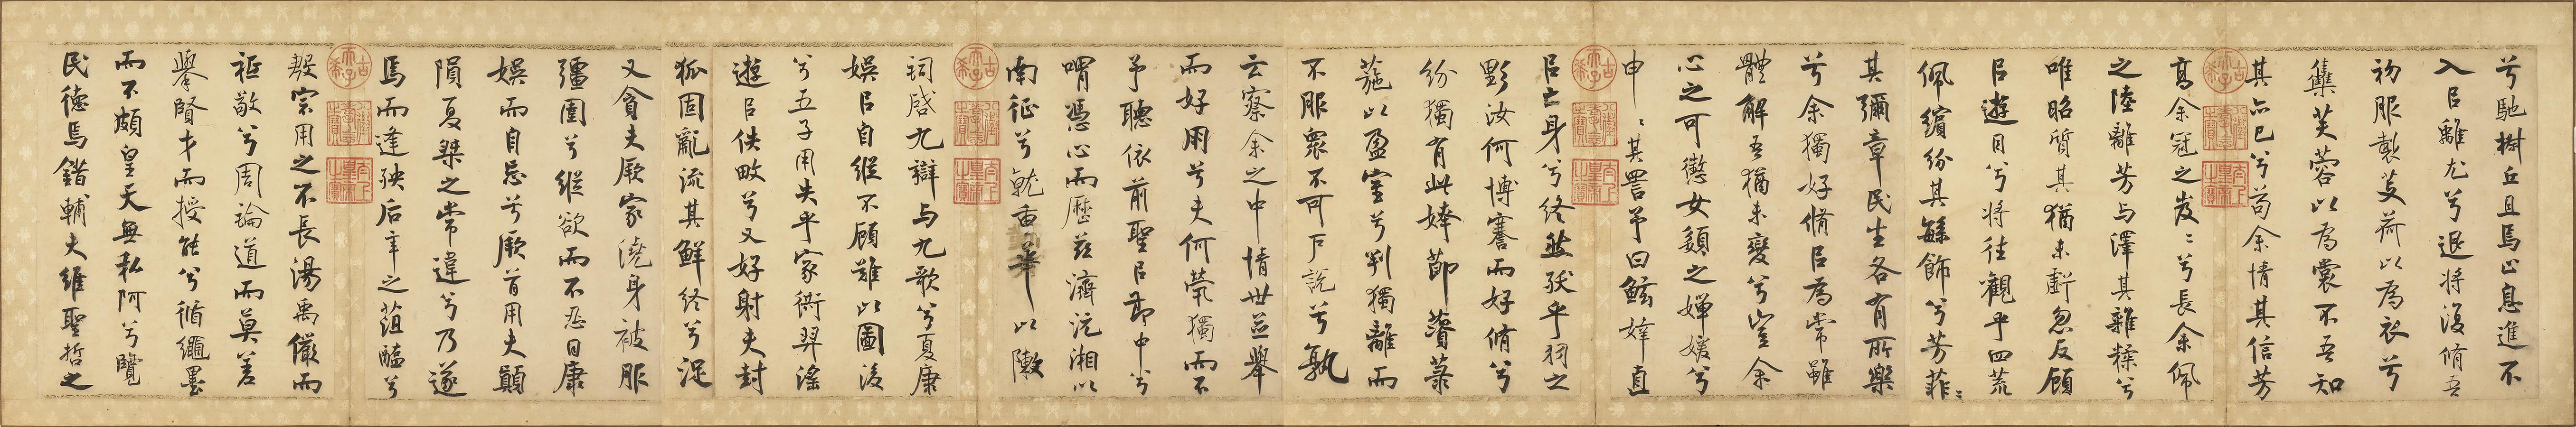 兮馳椒丘且焉止息進不
入以離尤兮退將復脩吾
初服製芰荷以為衣兮
集芙蓉以為裳不吾知
其亦已兮苟余情其信芳
高余冠之岌〻兮長余佩
之陸離芳与澤其雜糅兮
唯昭質其猶未虧忽反顧
以遊目兮將往觀乎四荒
佩繽紛其繇飾兮芳菲〻
其彌章民生各有所樂
兮余獨好脩以為常雖
體解吾猶未變兮豈余
心之可懲女嬃之嬋媛兮
申〻其詈予曰鯀婞直
以亡身兮終然殀乎羽之
野汝何博謇而好脩兮
紛獨有此姱節薋菉
葹以盈室兮判獨離而
不服衆不可戶說兮孰
云察余之中情世並舉
而好朋兮夫何煢獨而不
予聽依前聖以節中兮
喟憑心而歷茲濟沅湘以
南征兮就重華以敶
詞啓九辯与九歌兮夏康
娛以自縱不顧難以圖後
兮五子用失乎家衖羿淫
遊以佚畋兮又好射夫封
狐固亂流其鮮終兮浞
又貪夫厥家澆身被服
彊圉兮縱欲而不忍日康
娛而自忘兮厥首用夫顛
隕夏桀之常違兮乃遂
焉而逢殃后辛之菹醢兮
殷宗用之不長湯禹儼而
祗敬兮周論道而莫差
舉賢才而授能兮循繩墨
而不頗皇天無私阿兮覽
民德焉錯輔夫維聖哲之